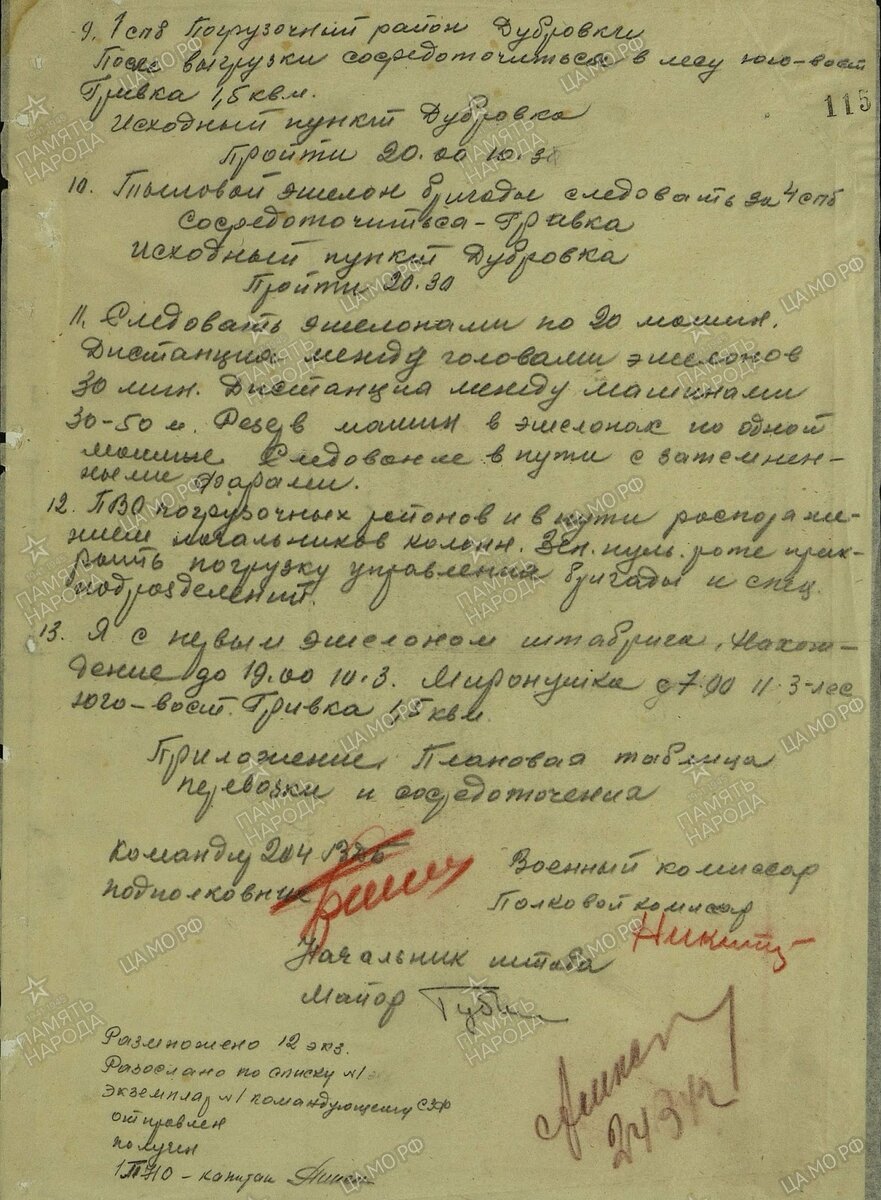 115
9. 1 спб Погрузочный район Дубровки
После выгрузки сосредоточиться в лесу юго-вост
Гривка 1,5 квм.
Исходный пункт Дубровка
Пройти 20.00 10.3
10. Тыловой эшелон бригады следовать за 4 спб
Сосредоточиться - Гривка
Исходный пункт Дубровка
Пройти 20.30
11. Следовать эшелонами по 20 машин.
Дистанция между головами эшелонов
30 мин. Дистанция между машинами
30-50 м. Резерв машин в эшелонах по одной
машине Следование в пути с затемнен-
ными фарами.
12. ПВО погрузочных районов и в пути распоряже-
нием начальников колонн. Зен. пуль. роте прик-
рыть погрузку управления бригады и спец.
подразделений.
13. Я с первым эшелоном штабрига. Нахож-
дение до 19.00 10.3. Миронушка с 7.00 11.3-лес
юго-вост. Гривка 1,5 квм.
Приложение Плановая таблица
перевозки и сосредоточения
Командир 204 ВДБ
подполковник
Военный комиссар
Полковой комиссар
Начальник штаба
Майор
Размножено 12 экз.
Разослано по списку №1
Экземпляр №1 командующему СЗФ
отправлен
получен
- капитан
ПАМЯТЬ НАРОДА
ЦАМО.РФ